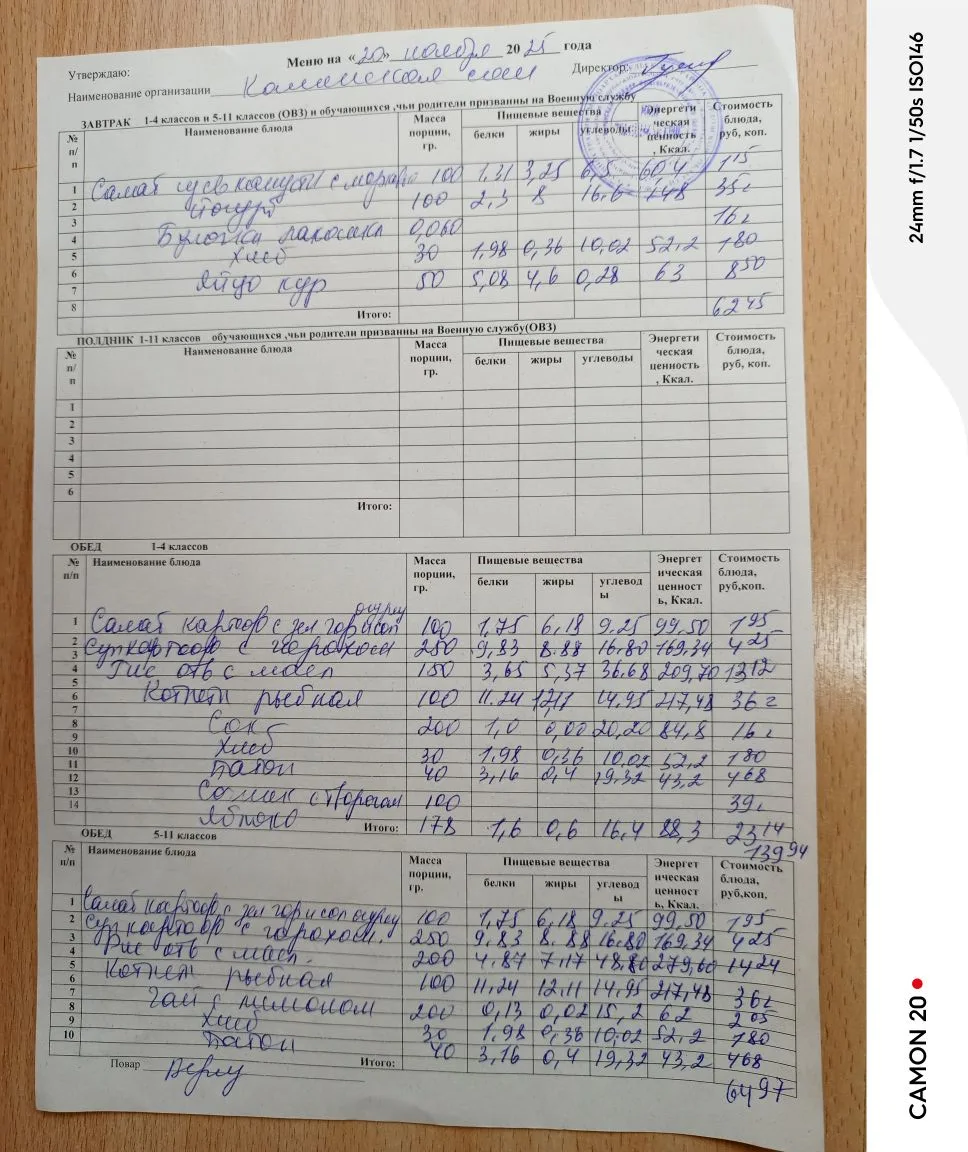 Утверждаю: Меню на «20» ноября 2025 года
Наименование организации Каменская сош Директор:
ЗАВТРАК 1-4 классов и 5-11 классов (ОВЗ) и обучающихся ,чьи родители призванны на Военную службу
№ п/п Наименование блюда Масса порции, гр. Пищевые вещества Энергети ческая ценность , Ккал. Стоимость блюда, руб, коп.
белки жиры углеводы
1 Салат из св капусты с морков 100 1.31 3,25 6,5 60,4 7 15
2 Йогурт 100 2,3 8 16.6 148 35
3 16
4 Булочка лакомка 0,060
5 Хлеб 30 1,98 0,36 10,02 52,2 1 80
6 Яйцо кур 50 5,08 4,6 0,28 63 8 50
7
8 Итого: 62 45
ПОЛДНИК 1-11 классов обучающихся ,чьи родители призванны на Военную службу(ОВЗ)
№ п/п Наименование блюда Масса порции, гр. Пищевые вещества Энергети ческая ценность , Ккал. Стоимость блюда, руб, коп.
белки жиры углеводы
1
2
3
4
5
6
Итого:
ОБЕД 1-4 классов
№ п/п Наименование блюда Масса порции, гр. Пищевые вещества Энергет ическая ценност ь, Ккал. Стоимость блюда, руб,коп.
белки жиры углевод ы
огурец
1 Салат картоф с зел горошом 100 1,75 6,18 9.25 99,50 1 95
2 Суп картоф с горохом 250 9,83 8.88 16.80 169,34 4 25
3
4 Рис отв с масл 150 3,65 5,37 36.68 209,70 13 12
5
6 Котлет рыбная 100 11.24 12,11 14.95 217,48 36
7
8 Сок 200 1,0 0,00 20,20 84,8 16
9
10 Хлеб 30 1,98 0,36 10.02 52,2 1 80
11
12 Батон 40 3,16 0,4 19,32 43,2 4 68
13 Сочник с творогом 100 39
14 Яблоко Итого: 178 1,6 0,6 16,4 88,3 23 14
139 94
ОБЕД 5-11 классов
№ п/п Наименование блюда Масса порции, гр. Пищевые вещества Энергет ическая ценност ь, Ккал. Стоимость блюда, руб,коп.
белки жиры углевод ы
1 Салат картоф с зел горошом огурец 100 1,75 6,18 9.25 99,50 1 95
2 Суп картоф с горохом. 250 9.83 8.88 16.80 169,34 4 25
3
4 Рис отв с масл. 200 4.87 7.17 48.80 279,60 14 24
5 Котлет рыбная 100 11,24 12,11 14,95 217,48 36
6
7 Чай с лимоном 200 0,13 0,02 15,2 62 2 05
8 Хлеб 30 1.98 0,36 10,02 52,2 1 80
9
10 Батон 40 3,16 0,4 19,32 43,2 4 68
Повар Итого: 64 97
24mm f/1.7 1/50s ISO146
CAMON 20